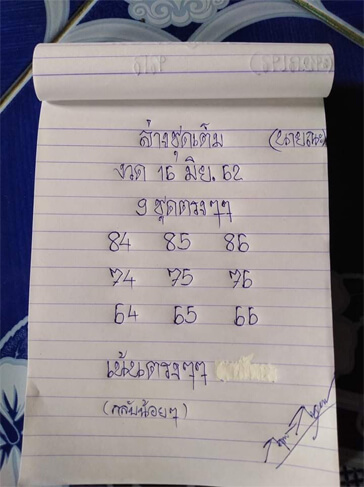 ล่างชุดเต็ม
งวด 16 มิย. 62
9 ชุดตรงๆๆ
84 85 86
74 75 76
64 65 66
เน้นตรงๆๆ
(กลับน้อยๆ)